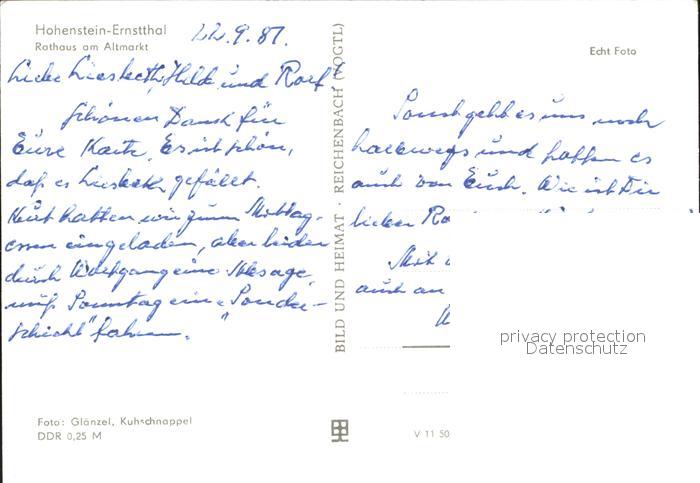 Hohenstein-Ernstthal
Rathaus am Altmarkt
22.9.87.
Liebe Liesbeth, Hilde und Rolf!
Schönen Dank für
Eure Karte. Es ist schön,
daß es Liesbeth gefällt.
Kurt hatten wir zum Mittag-
essen eingeladen, aber leider
durch Wolfgang eine Absage,
muß Sonntag eine „Sonder-
schicht" fahren.
BILD UND HEIMAT · REICHENBACH (VOGTL)
Echt Foto
Sonst geht es uns noch
halbwegs und hoffen es
auch von Euch. Wie ist Dir
lieber Ro
Mit
auch an
privacy protection
Datenschutz
Foto: Glänzel, Kuhschnappel
DDR 0,25 M
V 11 50